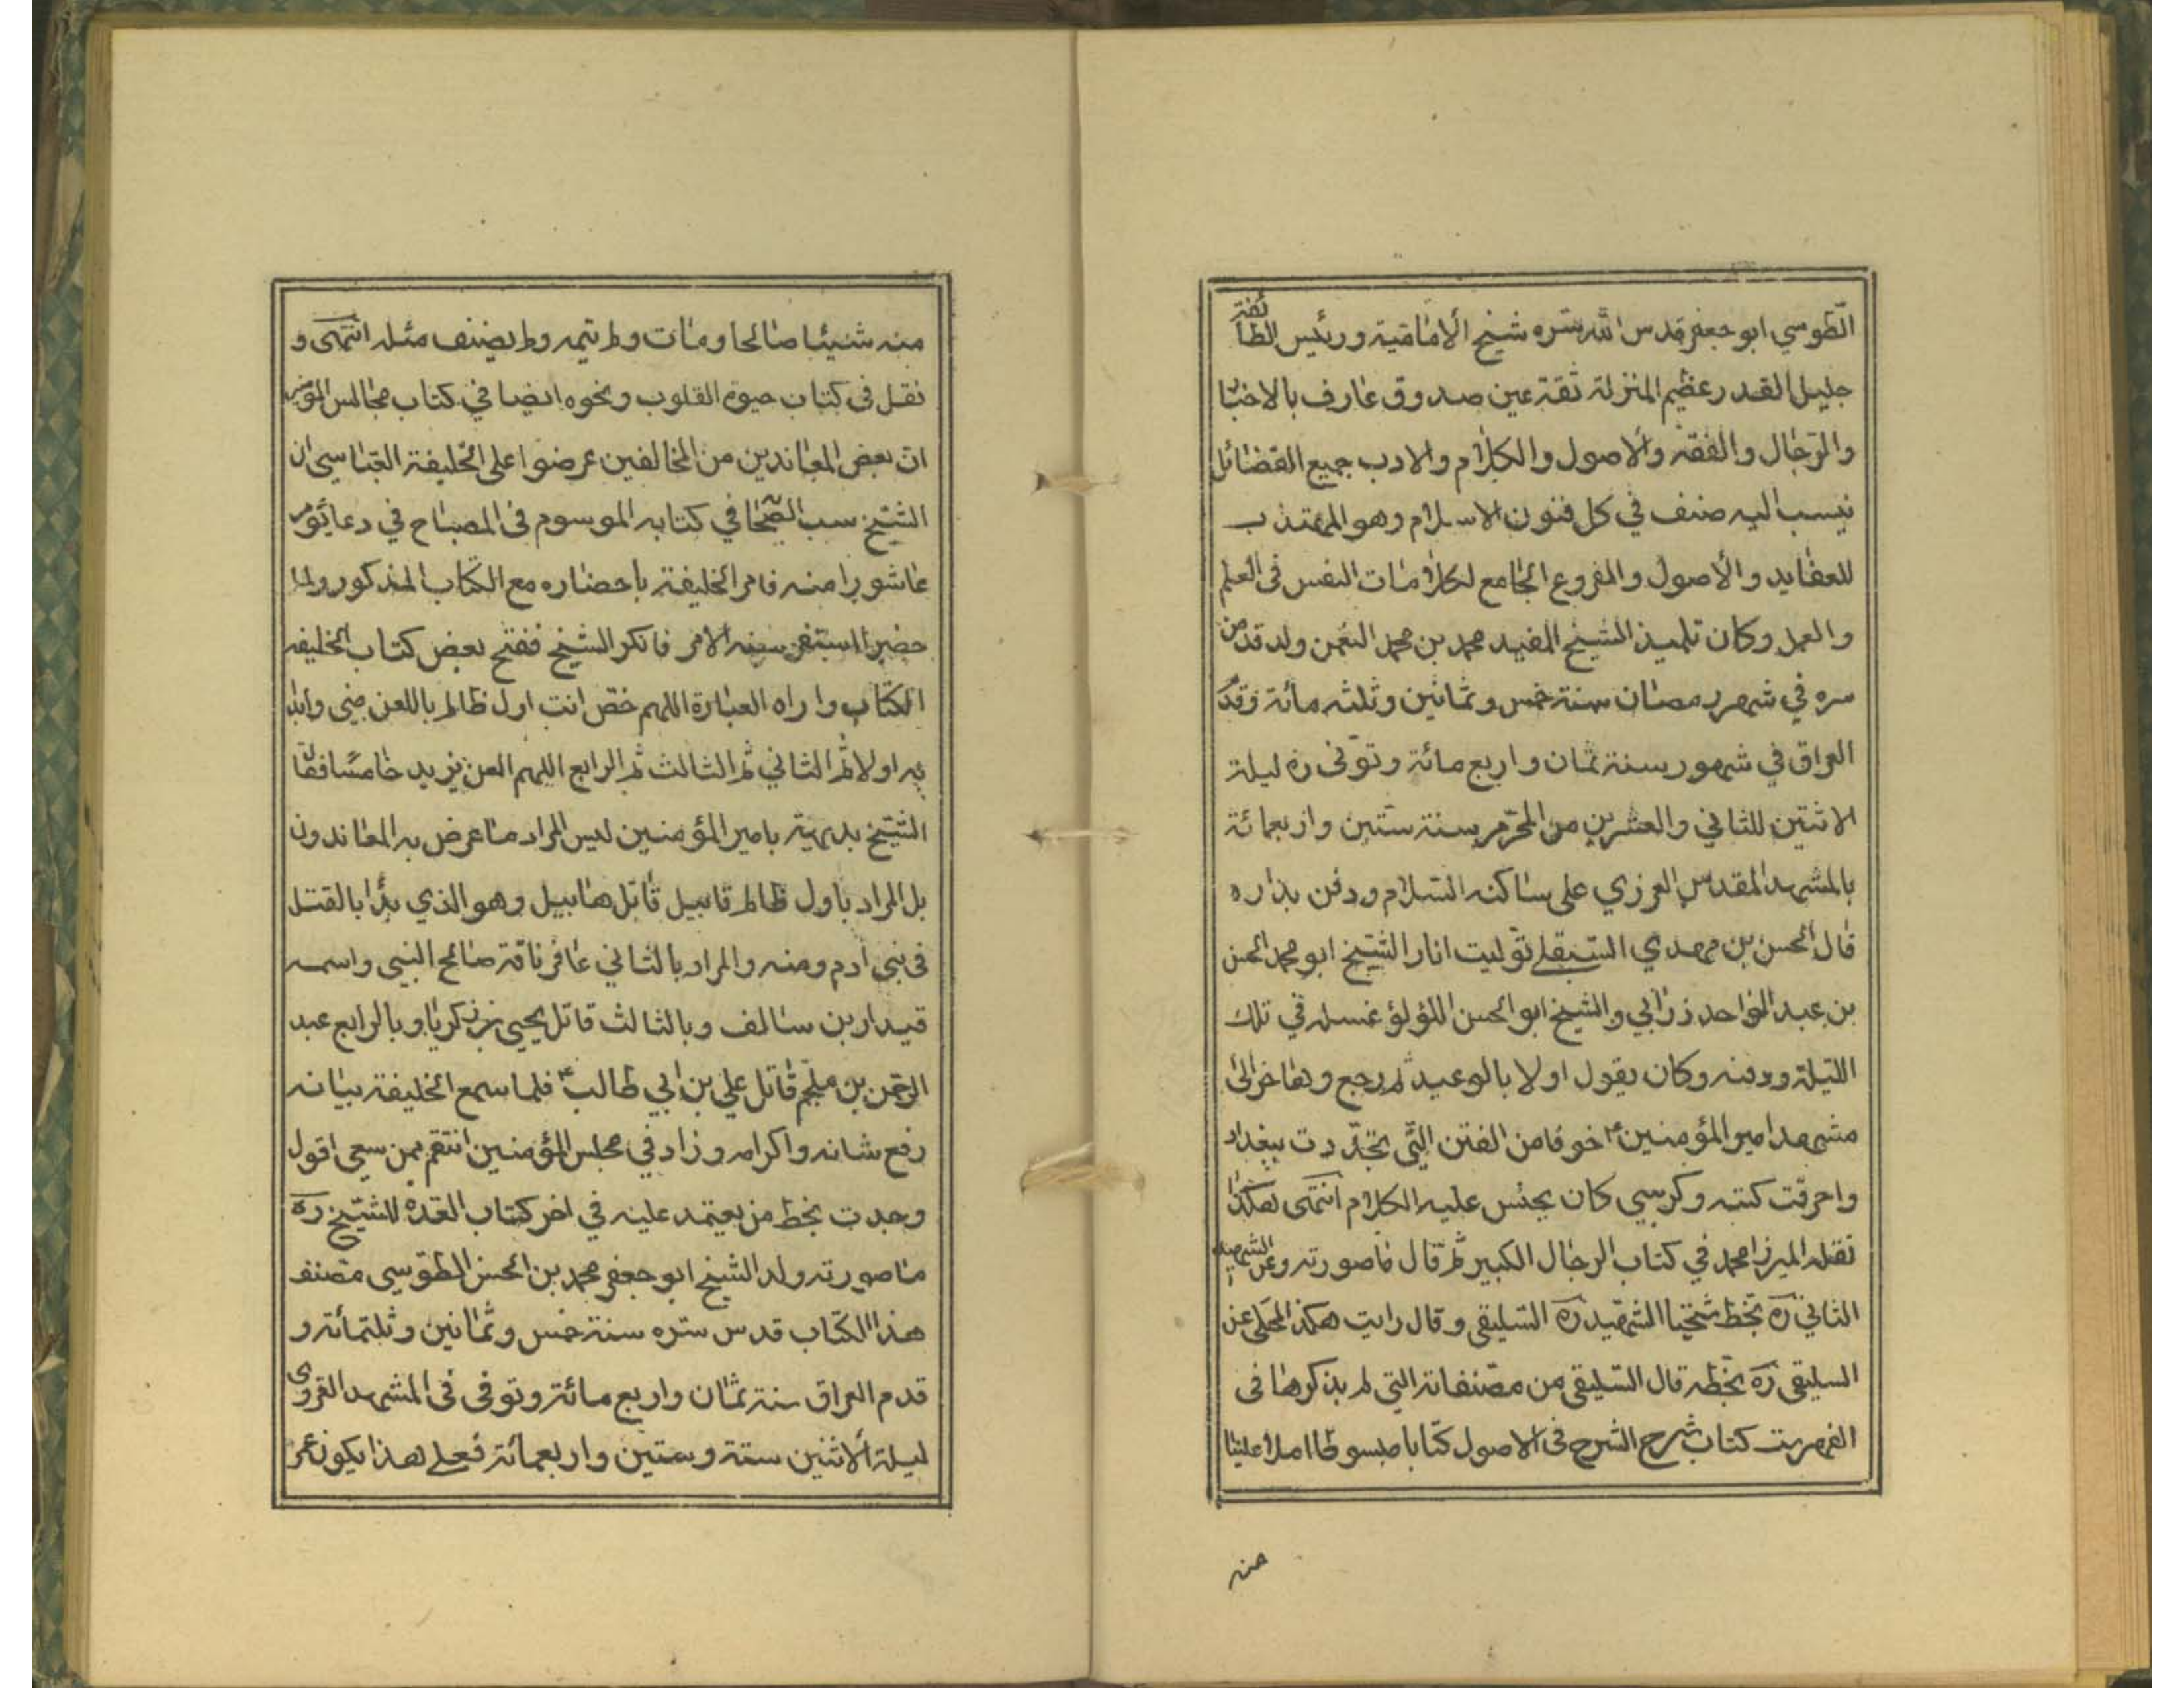 الطوسي ابو جعفر قدس الله سره شيخ الامامية ورئيس الطائفة
جليل القدر عظيم المنزلة ثقة عين صدوق عارف بالاخبا
والرجال والفقه والاصول والكلام والادب جميع الفضائل
ينسب اليه صنف في كل فنون الاسلام وهو المهذب
للعقايد والاصول والفروع الجامع لكلامات النفس في العلم
والعمل وكان تلميذ الشيخ المفيد محمد بن محمد النعمن ولد قدس
سره في شهر رمضان سنة خمس وثمانين وثلثه مائة وقدم
العراق في شهور سنة ثمان واربع مائة وتوفى ره ليلة
الاثنين للثاني والعشرين من المحرم سنة ستين واربعمائة
بالمشهد المقدس الغروي على ساكنه السلام ودفن بداره
قال الحسن بن مهدي السيقلي توليت انا والشيخ ابو محمد الحسن
بن عبد الواحد زرابي والشيخ ابو الحسن اللؤلؤ غسله في تلك
الليلة ودفنه وكان يقول اولا بالوعيد ثم رجع وهاجر الى
مشهد امير المؤمنين ع خوفا من الفتن التي تجددت ببغداد
واحرقت كتبه وكرسي كان يجلس عليه الكلام انتهى هكذا
نقله الميرزا محمد في كتاب الرجال الكبير ثم قال ما صورته وعن الشهيد
الثاني ره بخط شيخنا الشهيد ره السليقي وقال رايت هكذا المحلى عن
السليقي ره بخطه قال السليقي من مصنفاته التي لم يذكرها في
الفهرست كتاب شرح الشرح في الاصول كتابا مبسوطا املا علينا
منه
منه شيئا صالحا ومات ولم يتمه ولم يصنف مثله انتهى و
نقل في كتاب حيوة القلوب ونحوه ايضا في كتاب مجالس المؤمنين
ان بعض المعاندين من المخالفين عرضوا على الخليفة العباسي ان
الشيخ سب الصحابا في كتابه الموسوم في المصباح في دعا يوم
عاشورا منه فامر الخليفة باحضاره مع الكتاب المذكور ولما
حضر استفسر منه الامر فانكر الشيخ ففتح بعض كتاب الخليفه
الكتاب واراه العبارة اللهم خص انت اول ظالم باللعن مني وابدا
به اولا ثم الثاني ثم الثالث ثم الرابع اللهم العن يزيد خامسا فقال
الشيخ بديهية يا امير المؤمنين ليس المراد ما عرض به المعاندون
بل المراد باول ظالم قابيل قاتل هابيل وهو الذي بدا بالقتل
في بني ادم ومنه والمراد بالثاني عاقر ناقة صالح النبي واسمه
قيدار بن سالف وبالثالث قاتل يحيى بن زكريا وبالرابع عبد
الرحمن بن ملجم قاتل علي بن ابي طالب ع فلما سمع الخليفة بيانه
رفع شانه واكرامه وزاد في مجلس المؤمنين انتقم ممن سعى اقول
وجدت بخط من يعتمد عليه في اخر كتاب العده للشيخ ره
ما صورته ولد الشيخ ابو جعفر محمد بن الحسن الطوسي مصنف
هذا الكتاب قدس سره سنة خمس وثمانين وثلثمائة و
قدم العراق سنة ثمان واربع مائة وتوفى في المشهد الغروي
ليلة الاثنين ستة وستين واربعمائة فعلى هذا يكون عمر